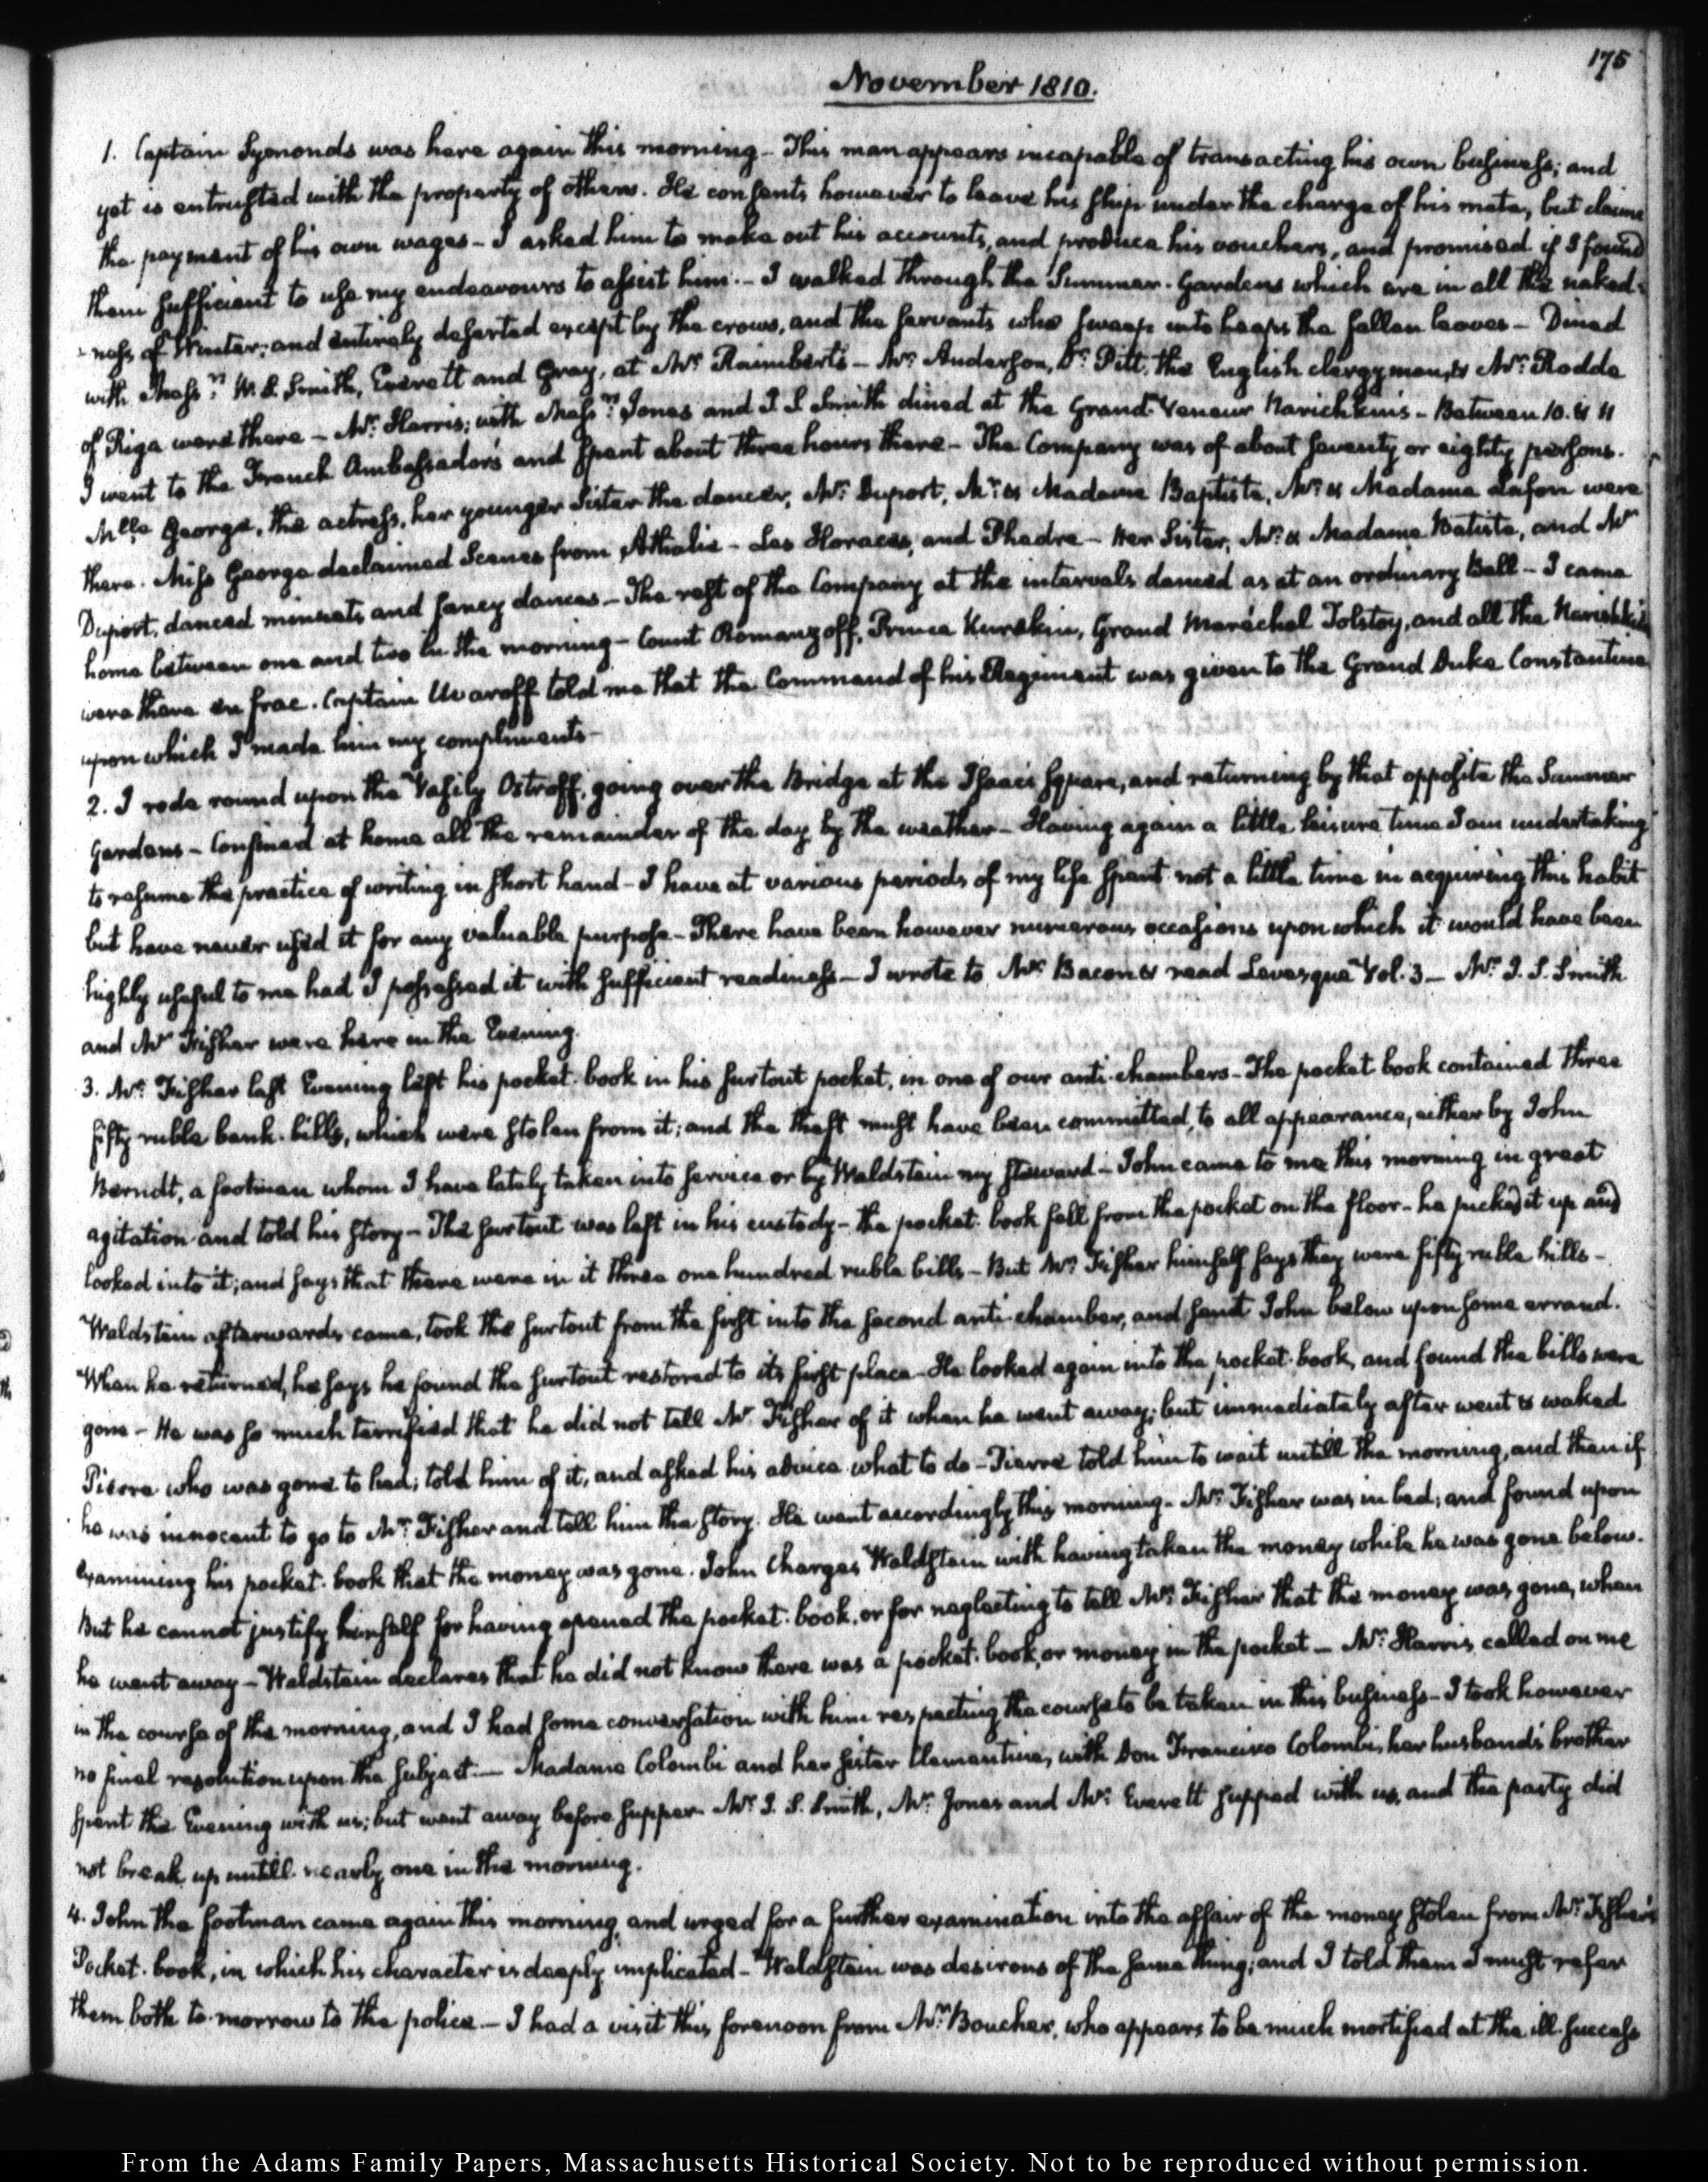 175
November 1810.
1. Captain Symonds was here again this morning - This man appears incapable of transacting his own business; and
yet is entrusted with the property of others. He consents however to leave his ship under the charge of his mate, but claims
the payment of his own wages - I asked him to make out his accounts, and produce his vouchers, and promised if I found
them sufficient to use my endeavours to assist him. - I walked through the Summer-Gardens which are in all the naked-
-ness of Winter; and entirely deserted except by the crows, and the servants who sweep into heaps the fallen leaves - Dined
with Mess.rs W. S. Smith, Everett and Gray, at Mr. Raimbert's - Mr. Anderson, Dr. Pitt, the English clergyman, & Mr. Rodde
of Riga were there - Mr. Harris; with Mess.rs Jones and J. S Smith dined at the Grand-Veneur Narichkin's - Between 10. & 11
I went to the French Ambassador's and spent about three hours there - The Company was of about seventy or eighty persons.
Mlle George, the actress, her younger Sister the dancer, Mr. Duport, Mr. & Madame Baptiste, Mr. & Madame Lafon were
there. Miss George declaimed Scenes from Athalie - Les Horaces, and Phedre - Her Sister, Mr. & Madame Batiste, and Mr
Duport, danced minuets and fancy dances - The rest of the Company at the intervals danced as at an ordinary Ball - I came
home between one and two in the morning - Count Romanzoff, Prince Kurakin, Grand Maréchal Tolstoy, and all the Narishkin's
were there en frac. Captain Uwaroff told me that the Command of his Regiment was given to the Grand Duke Constantine
upon which I made him my compliments -
2. I rode round upon the Vasily Ostroff, going over the Bridge at the Isaac's Square, and returning by that opposite the Summer
Gardens - Confined at home all the remainder of the day by the weather - Having again a little leisure time I am undertaking
to resume the practice of writing in short hand - I have at various periods of my life spent not a little time in acquiring this habit
but have never used it for any valuable purpose - There have been however numerous occasions upon which it would have been
highly useful to me had I possessed it with sufficient readiness - I wrote to Mr. Bacon & read Levesque Vol. 3 - Mr. J. S. Smith
and Mr Fisher were here in the Evening.
3. Mr. Fisher last Evening left his pocket-book in his surtout pocket, in one of our anti-chambers - The pocket book contained three
fifty ruble bank-bills, which were stolen from it; and the theft must have been committed, to all appearance, either by John
Berndt, a footman whom I have lately taken into service or by Waldstein my steward - John came to me this morning in great
agitation and told his story - The surtout was left in his custody - the pocket-book fell from the pocket on the floor - he picked it up and
looked into it; and says that there were in it three one hundred ruble bills - But Mr. Fisher himself says they were fifty ruble bills -
Waldstein afterwards came, took the surtout from the first into the second anti-chamber, and sent John below upon some errand.
When he returned, he says he found the surtout restored to its first place - He looked again into the pocket-book, and found the bills were
gone - He was so much terrified that he did not tell Mr. Fisher of it when he went away; but immediately after went & waked
Pierre who was gone to bed; told him of it, and asked his advice what to do - Pierre told him to wait untill the morning, and then if
he was innocent to go to Mr. Fisher and tell him the story. He went accordingly this morning - Mr. Fisher was in bed; and found upon
examining his pocket-book that the money was gone. John Charges Waldstein with having taken the money while he was gone below.
But he cannot justify himself for having opened the pocket-book, or for neglecting to tell Mr. Fisher that the money was gone, when
he went away - Waldstein declares that he did not know there was a pocket-book, or money in the pocket - Mr. Harris called on me
in the course of the morning, and I had some conversation with him respecting the course to be taken in this business - I took however
no final resolution upon the subject. - Madame Colombi and her sister Clementine, with Don Francisco Colombi, her husband's brother
spent the Evening with us; but went away before supper. Mr. J. S. Smith, Mr. Jones and Mr. Everett supped with us, and the party did
not break up untill nearly one in the morning.
4. John the footman came again this morning, and urged for a further examination into the affair of the money stolen from Mr. Fisher's
Pocket-book, in which his character is deeply implicated - Waldstein was desirous of the same thing; and I told them I must refer
them both to-morrow to the police - I had a visit this forenoon from Mr. Boucher, who appears to be much mortified at the ill success
From the Adams Family Papers, Massachusetts Historical Society. Not to be reproduced without permission.